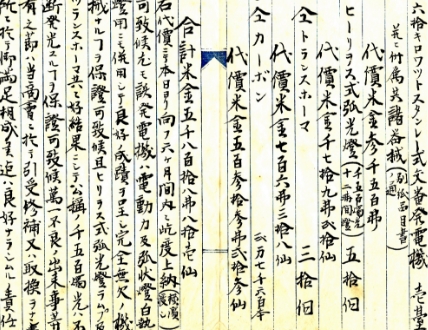 六拾キロワットスタンレー式交番発電機 壱臺
並ニ附属共諸器械(別紙品目書ノ通)
代價米金参千五百弗
ヒーリヲス式弧光燈(千二百燭光十二時間燈)五拾個
代價米金千七拾九弗弐拾仙
仝トランスホーマ 三拾個
代價米金七百六弗三拾八仙
仝カーボン 弐万七千六百本
代價米金五百参拾参弗弐拾参仙
合計米金五千八百拾八弗八拾壱仙
右代價ニテ本日ヨリ向フ六ヶ月間内ニ屹度上納
可致候尤モ該発電機ハ電動力及弧状燈白熱
燈用ニモ併用シテ良好ノ成蹟ヲ呈シ完全無欠ノ機
械ナル丁ヲ保證可致候且ヒーリヲス式弧光燈ラップ及
トランスホーマ共ニ好結果ニテ公稱ノ千五百燭光ハ不
断発光スル丁ヲ保證可致候萬一不良ノ出来事等
有之節ハ当商會ニ於テ引受修補又ハ取換ヲナシ
所ニ於テ御満足相成候迠ハ良好ナラシムル責任